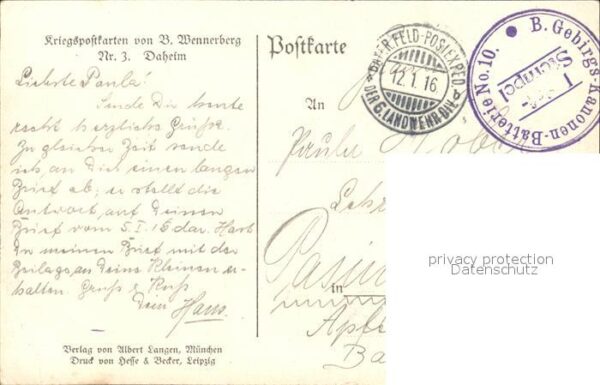 Kriegspostkarten von B. Wennerberg
Nr. 3. Daheim
Liebste Paula!
Sende Dir heute
recht herzliche Grüße.
Zu gleicher Zeit sende
ich an Dich einen langen
Brief ab; er stellt die
Antwort auf Deinen
Brief vom 5.I.16 dar. Hast
Du meinen Brief mit der
Beilage an Deine Kleinen er-
halten. Gruß & Kuß
Dein Hans.
Verlag von Albert Langen, München
Druck von Hesse & Becker, Leipzig
Postkarte
An
Paula
in
BAYER. FELD-POSTEXPED.
12.1.16
DER 6. LANDWEHR-DIV.
B. Gebirgs-Kanonen-Batterie No. 10.
Stempel
privacy protection
Datenschutz